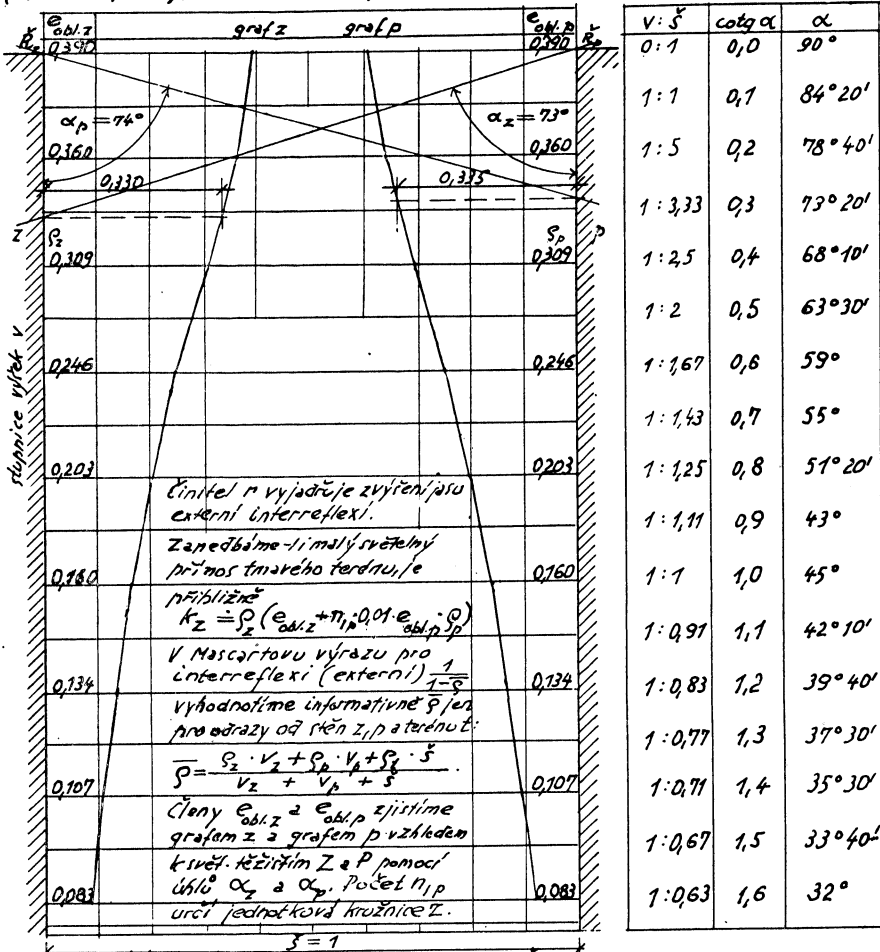 e obl.z
graf z
graf p
e obl.p
Řz
0,390
0,390
Řp
αp = 74°
αz = 73°
0,360
0,360
0,330
0,335
Z
P
ρz
ρp
0,309
0,309
slupnice výšek v
0,246
0,246
0,203
0,203
Činitel r vyjadřuje zvýšení jasu
externí interreflexí.
Zanedbáme-li malý světelný
přínos tmavého terénu, je
0,160
0,160
přibližně
kz ≐ ρz (e obl.z + n1p · 0,01 · e obl.p · ρp)
V Mascartovu výrazu pro
interreflexi (externí) 1/(1-ρ̄)
0,134
0,134
vyhodnotíme informativně ρ̄ jen
pro odrazy od stěn z, p a terénu t:
ρ̄ = (ρz · vz + ρp · vp + ρt · š) / (vz + vp + š)
0,107
0,107
Členy e obl.z a e obl.p zjistíme
grafem z a grafem p vzhledem
k svět. těžištím Z a P pomocí
úhlů αz a αp. Počet n1p
0,083
0,083
určí jednotková kružnice Z.
š = 1
v:š cotg α α
0:1 0,0 90°
1:1 0,1 84°20'
1:5 0,2 78°40'
1:3,33 0,3 73°20'
1:2,5 0,4 68°10'
1:2 0,5 63°30'
1:1,67 0,6 59°
1:1,43 0,7 55°
1:1,25 0,8 51°20'
1:1,11 0,9 43°
1:1 1,0 45°
1:0,91 1,1 42°10'
1:0,83 1,2 39°40'
1:0,77 1,3 37°30'
1:0,71 1,4 35°30'
1:0,67 1,5 33°40'
1:0,63 1,6 32°